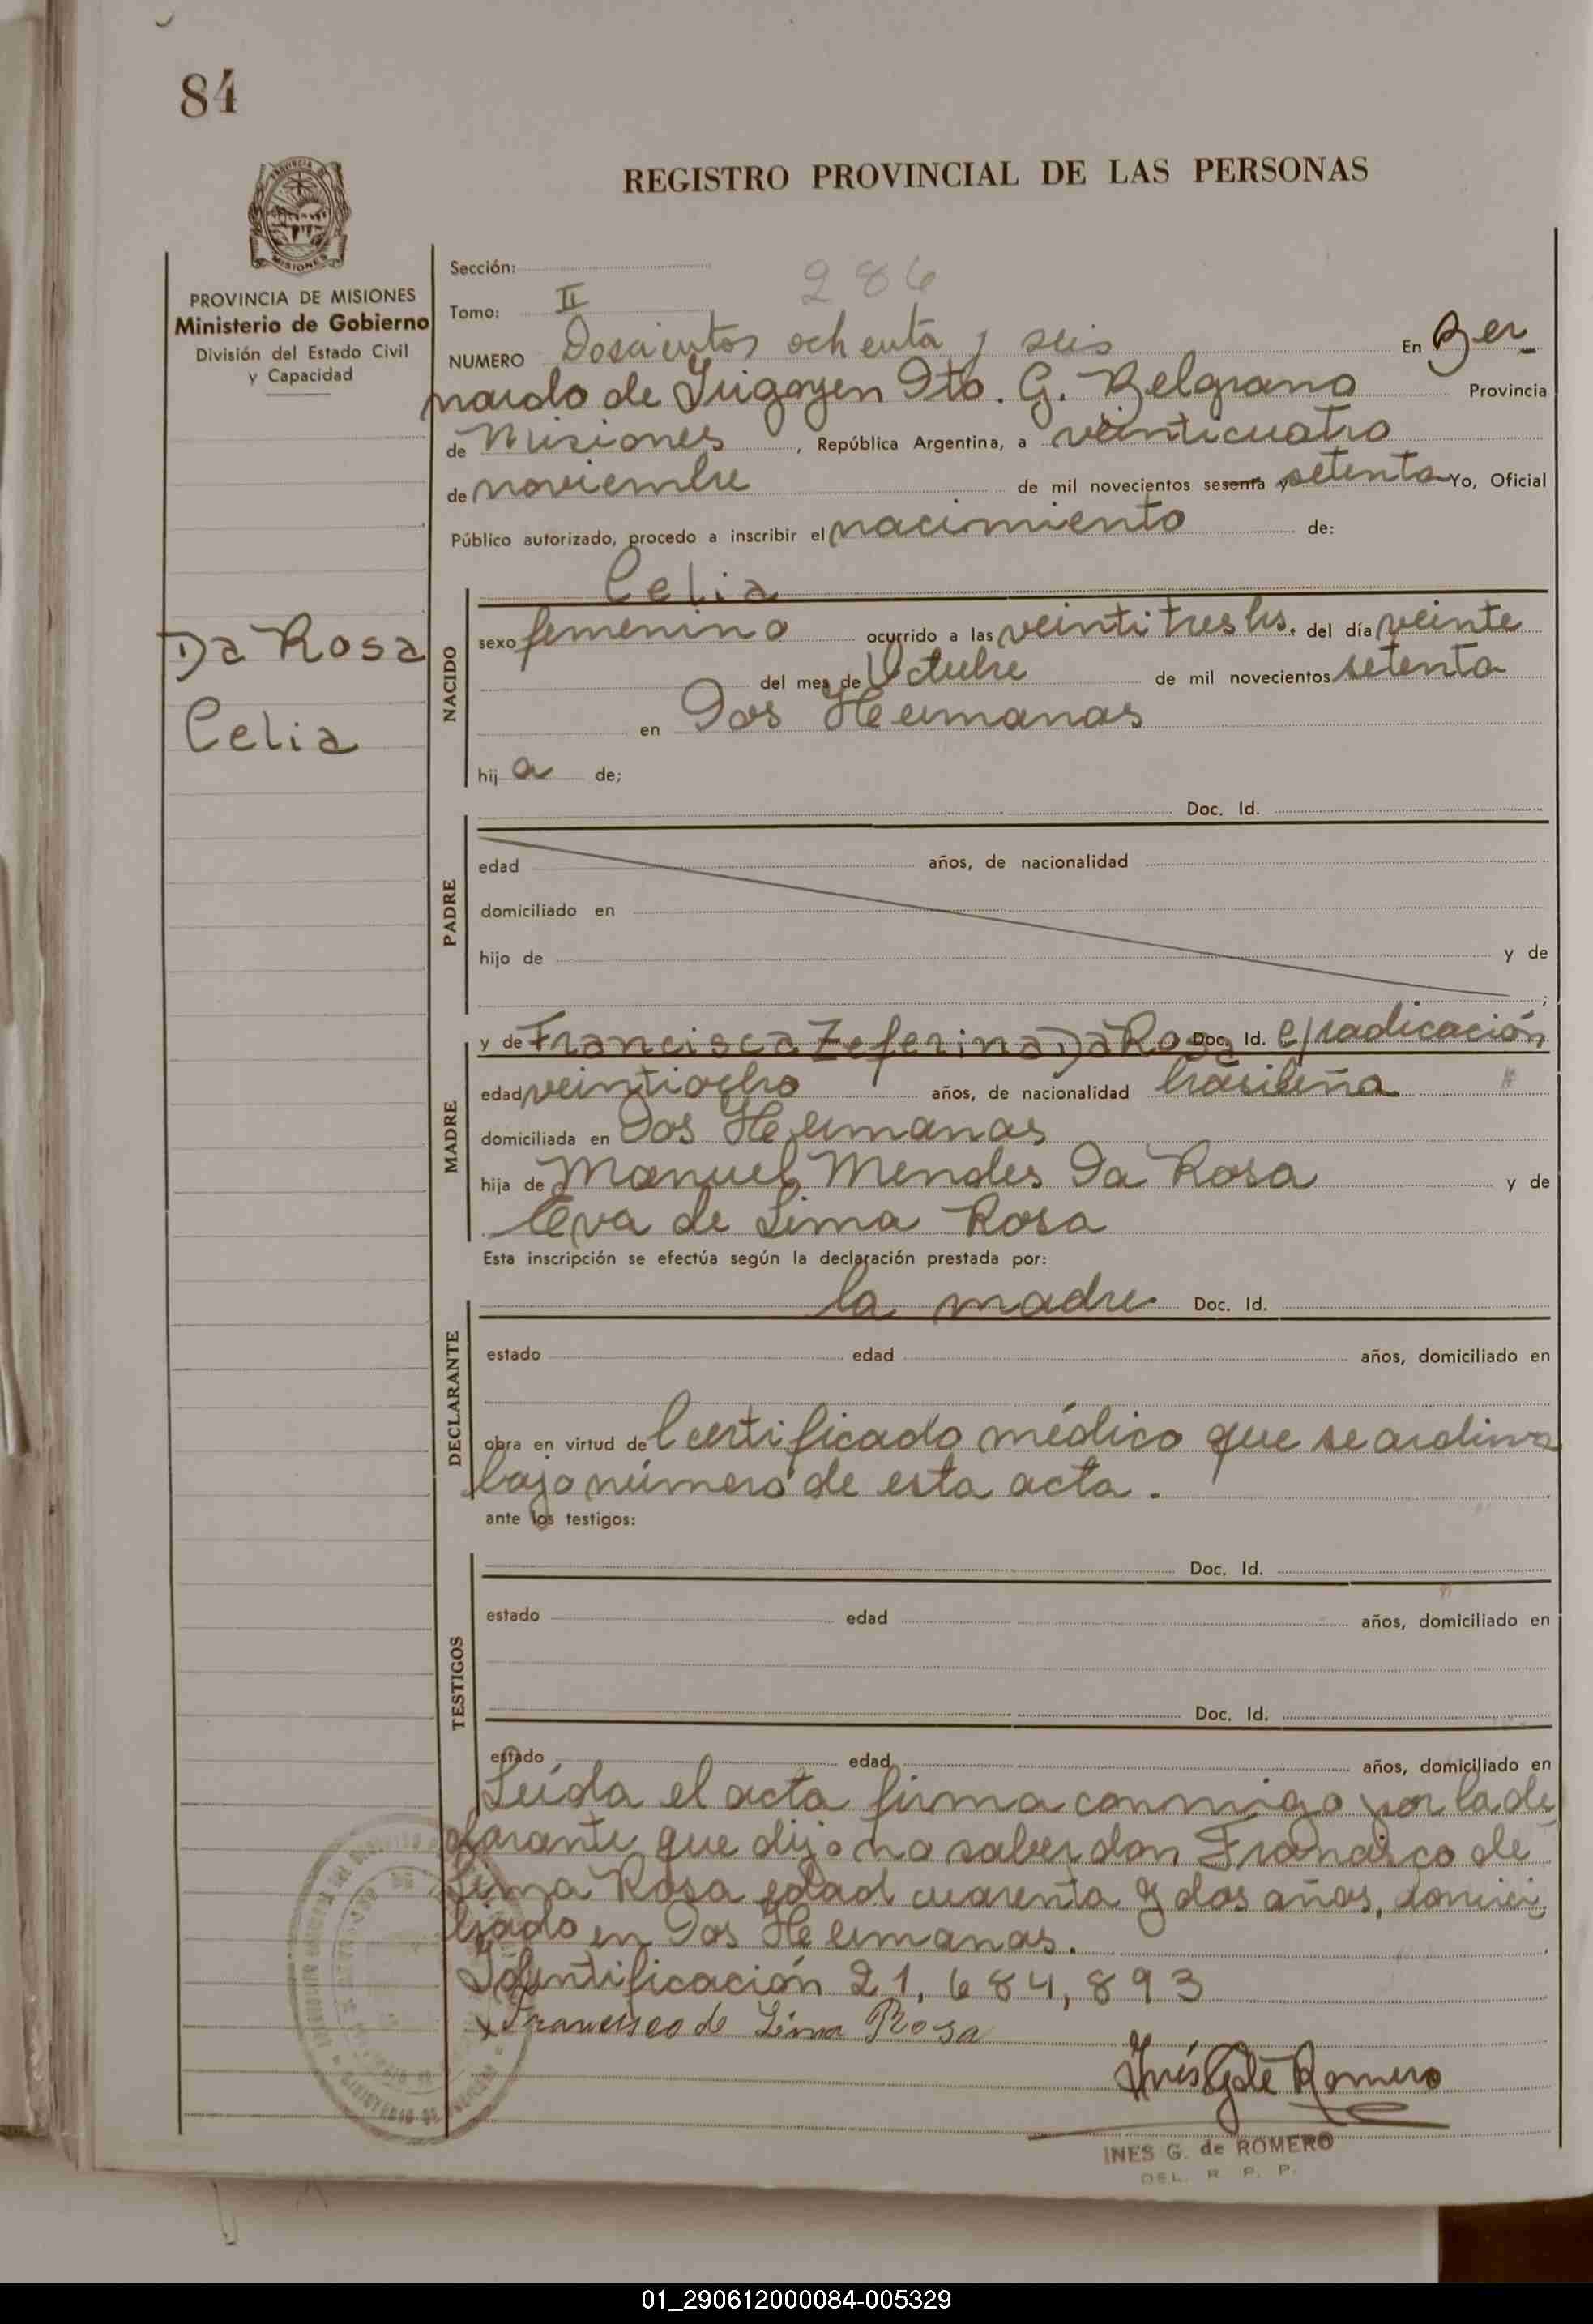 84
REGISTRO PROVINCIAL DE LAS PERSONAS
PROVINCIA DE MISIONES
Ministerio de Gobierno
División del Estado Civil
y Capacidad
Da Rosa
Celia
Sección:
286
Tomo: II
NUMERO Doscientos ochenta y seis En Ber
nardo de Irigoyen Dto. G. Belgrano Provincia
de Misiones, República Argentina, a veinticuatro
de noviembre de mil novecientos sesenta y setenta Yo, Oficial
Público autorizado, procedo a inscribir el nacimiento de:
Celia
NACIDO
sexo femenino ocurrido a las veintitres hs. del día veinte
del mes de Octubre de mil novecientos setenta
en Dos Hermanas
hij a de;
Doc. Id.
PADRE
edad años, de nacionalidad
domiciliado en
hijo de y de
;
MADRE
y de Francisca Zeferina Da Rosa Doc. Id. c/radicación
edad veintiocho años, de nacionalidad brasileña
domiciliada en Dos Hermanas
hija de Manuel Mendes Da Rosa y de
Eva de Lima Rosa
Esta inscripción se efectúa según la declaración prestada por:
la madre Doc. Id.
DECLARANTE
estado edad años, domiciliado en
obra en virtud de Certificado médico que se archiva
bajo número de esta acta.
ante los testigos:
Doc. Id.
TESTIGOS
estado edad años, domiciliado en
Doc. Id.
estado edad años, domiciliado en
Leída el acta firma conmigo por la de
clarante que dijo no saber don Francisco de
Lima Rosa edad cuarenta y dos años, domici
liado en Dos Hermanas.
Identificación 21,684,893
x Francisco de Lima Rosa
Inés G de Romero
INES G. de ROMERO
DEL. R. P. P.
01_290612000084-005329